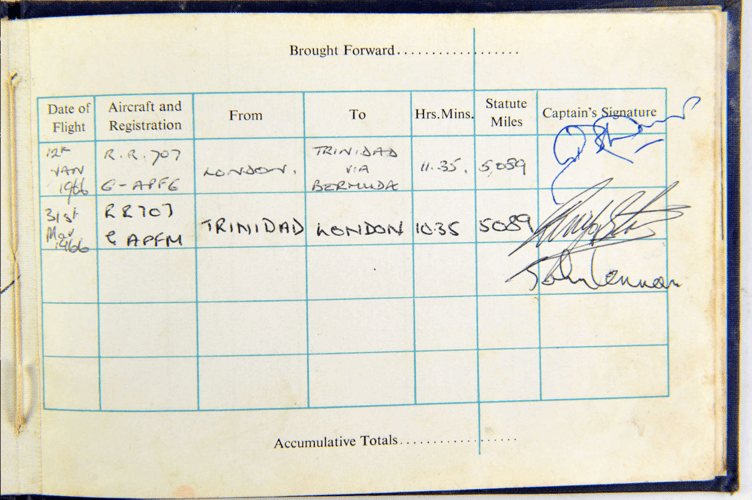 Brought Forward....................
Date of Flight Aircraft and Registration From To Hrs.Mins. Statute Miles Captain's Signature
12th JAN 1966 R.R. 707 G-APFG LONDON. TRINIDAD VIA BERMUDA 11.35. 5,089
31st Mar 1966 RR707 G APFM TRINIDAD LONDON 10.35 5089
John Lennon
Accumulative Totals....................